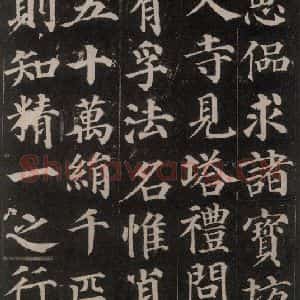 思侃求諸寶坊
入寺見塔禮問
有孚法名惟肖
五十萬絹千匹
則知精一之行
Shufawang.Cn